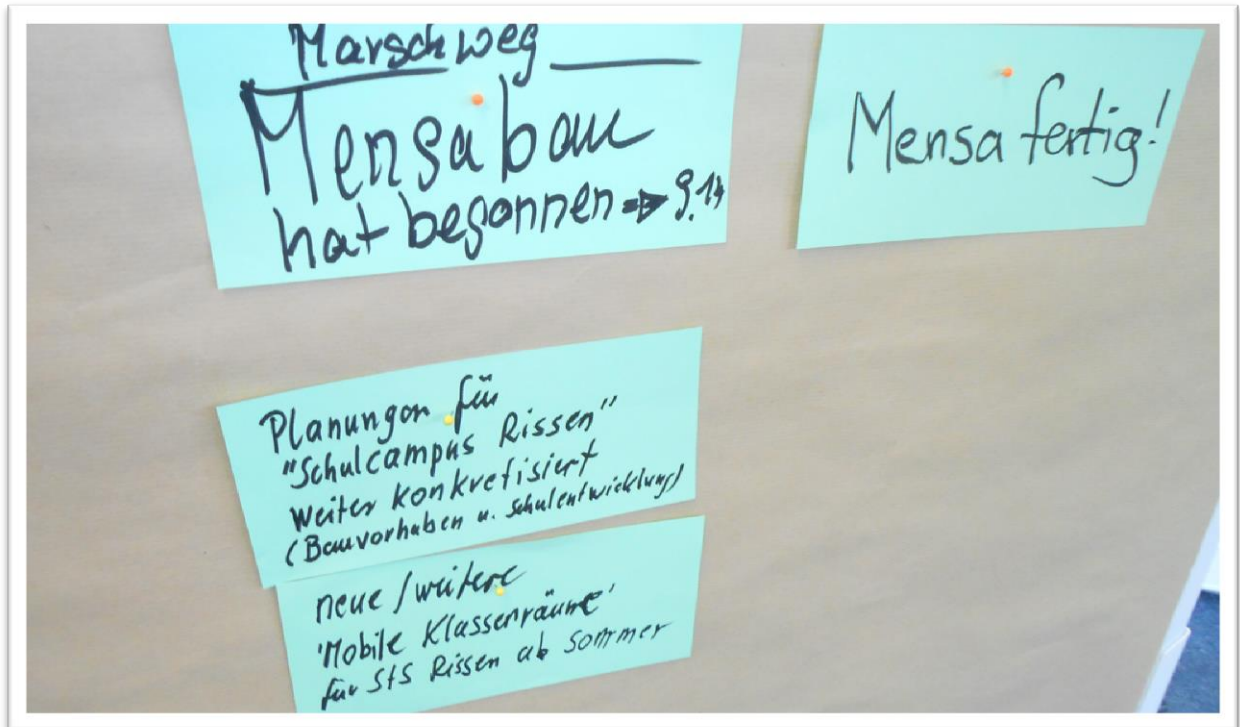 Marschweg
Mensabau
hat begonnen ⇒ 9.14
Mensa fertig!
Planungen für
"Schulcampus Rissen"
weiter konkretisiert
(Bauvorhaben u. Schulentwicklung)
neue/weitere
'Mobile Klassenräume'
für StS Rissen ab Sommer